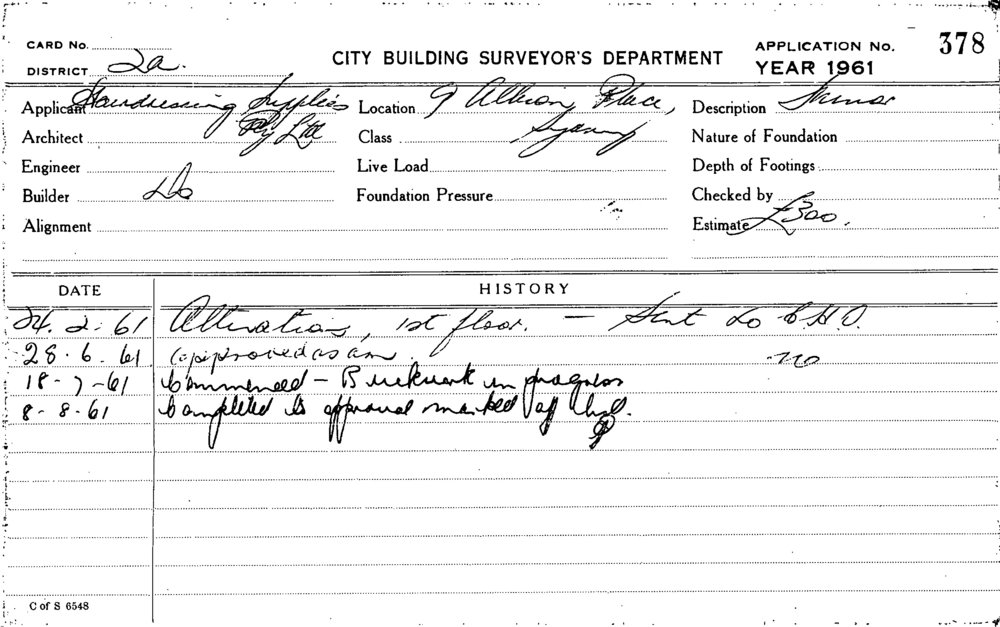 CARD No.
DISTRICT 2a.
CITY BUILDING SURVEYOR'S DEPARTMENT
APPLICATION No. 378
YEAR 1961
Applicant Hairdressing Supplies Pty Ltd
Location 9 Albion Place, Sydney
Description Minor
Architect
Class
Nature of Foundation
Engineer
Live Load
Depth of Footings
Builder Do
Foundation Pressure
Checked by
Alignment
Estimate £300.
DATE HISTORY
24.2.61 Alterations, 1st floor. — Sent to C.H.O.
28.6.61 approved as am. no
18-7-61 Commenced - Brickwork in progress
8-8-61 Completed to approval marked off
C of S 6548